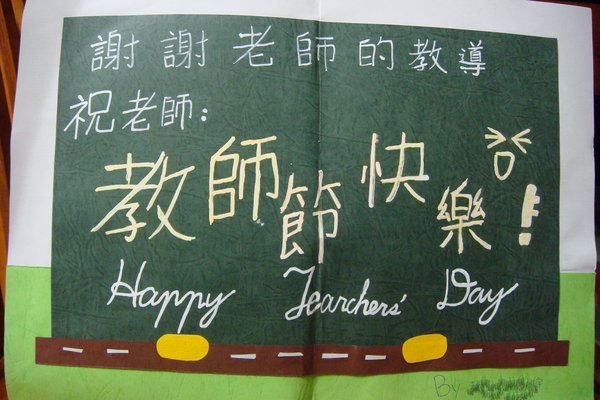 謝謝老師的教導
祝老師:
教師節快樂!
Happy Tearchers' Day
By